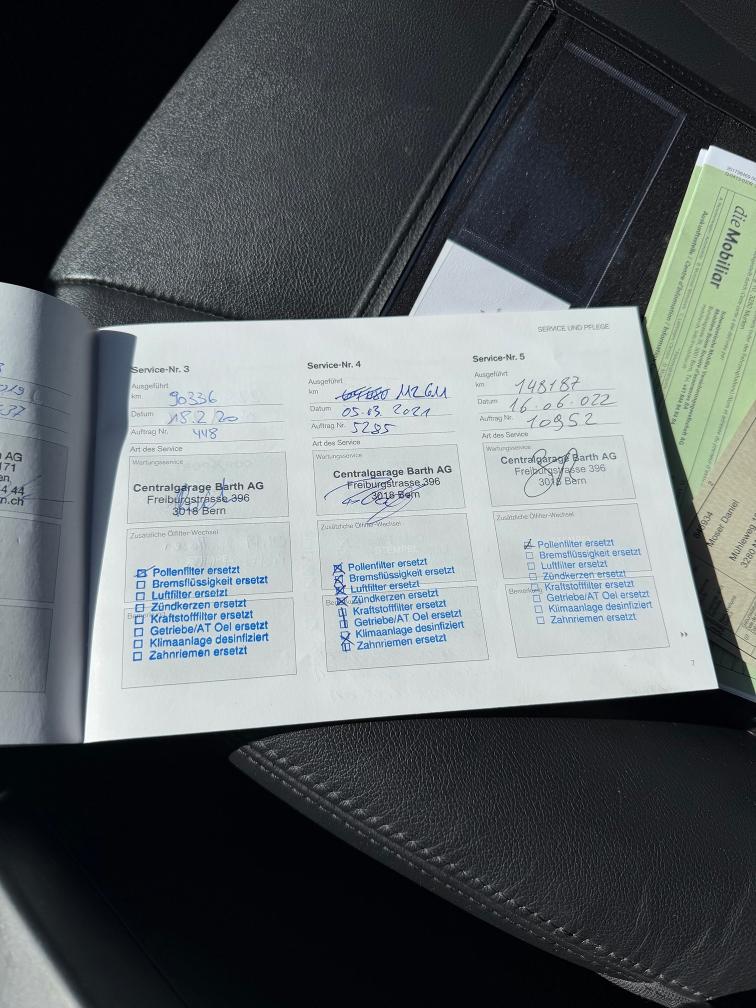 SERVICE UND PFLEGE
Service-Nr. 3
Ausgeführt
km 90336
Datum 18.2/20
Auftrag Nr. 448
Art des Service
Wartungsservice
Centralgarage Barth AG
Freiburgstrasse 396
3018 Bern
Zusätzliche Ölfilter-Wechsel
Pollenfilter ersetzt
Bremsflüssigkeit ersetzt
Luftfilter ersetzt
Zündkerzen ersetzt
Kraftstofffilter ersetzt
Getriebe/AT Oel ersetzt
Klimaanlage desinfiziert
Zahnriemen ersetzt
Service-Nr. 4
Ausgeführt
km 112611
Datum 05.03.2021
Auftrag Nr. 5285
Art des Service
Wartungsservice
Centralgarage Barth AG
Freiburgstrasse 396
3018 Bern
Zusätzliche Ölfilter-Wechsel
Pollenfilter ersetzt
Bremsflüssigkeit ersetzt
Luftfilter ersetzt
Zündkerzen ersetzt
Kraftstofffilter ersetzt
Getriebe/AT Oel ersetzt
Klimaanlage desinfiziert
Zahnriemen ersetzt
Service-Nr. 5
Ausgeführt
km 148187
Datum 16.06.022
Auftrag Nr. 10952
Art des Service
Wartungsservice
Centralgarage Barth AG
Freiburgstrasse 396
3018 Bern
Zusätzliche Ölfilter-Wechsel
Pollenfilter ersetzt
Bremsflüssigkeit ersetzt
Luftfilter ersetzt
Zündkerzen ersetzt
Kraftstofffilter ersetzt
Getriebe/AT Oel ersetzt
Klimaanlage desinfiziert
Zahnriemen ersetzt
7
AG
171
4 44
n.ch
die Mobiliar
Moser Daniel
Mühleweg